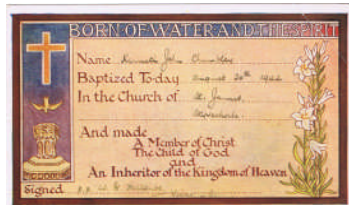 BORN OF WATER AND THE SPIRIT
Name Kenneth John
Baptized To-day August 20th
In the Church of St. James,
And made
A Member of Christ
The Child of God
and
An Inheritor of the Kingdom of Heaven
Signed